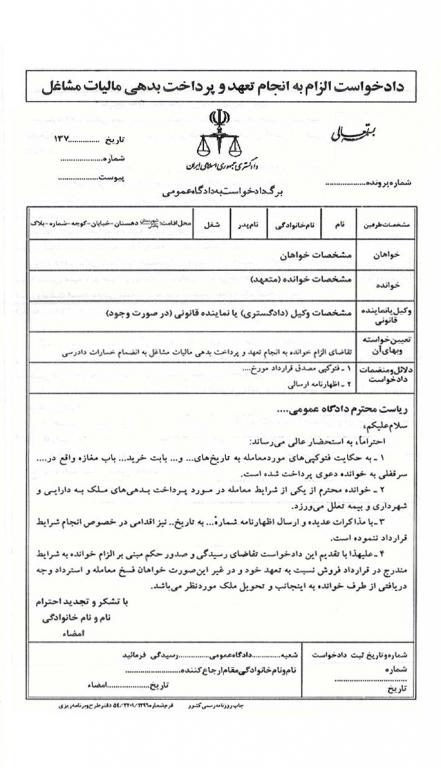 دادخواست الزام به انجام تعهد و پرداخت بدهی مالیات مشاغل
بسمه تعالی
تاریخ .............. ۱۳۷
شماره......................
پیوست.....................
دادگستری جمهوری اسلامی ایران
شماره پرونده.....................
برگ دادخواست به دادگاه عمومی
مشخصات طرفین نام نام خانوادگی نام پدر شغل محل اقامت: شهرستان دهستان-خیابان-کوچه-شماره-پلاک
خواهان مشخصات خواهان
خوانده مشخصات خوانده (متعهد)
وکیل یا نماینده قانونی مشخصات وکیل (دادگستری) یا نماینده قانونی (در صورت وجود)
تعیین خواسته وبهای آن تقاضای الزام خوانده به انجام تعهد و پرداخت بدهی مالیات مشاغل به انضمام خسارات دادرسی
دلائل و منضمات دادخواست ۱ - فتوکپی مصدق قرارداد مورخ....
۲ - اظهارنامه ارسالی
ریاست محترم دادگاه عمومی....
سلام علیکم،
احتراماً، به استحضار عالی می‌رساند:
۱ - به حکایت فتوکپی‌های مورد معامله به تاریخ‌های... و... بابت خرید... باب مغازه واقع در....
سرقفلی به خوانده دعوی پرداخت شده است.
۲ - خوانده محترم از یکی از شرایط معامله در مورد پرداخت بدهی‌های ملک به دارایی و
شهرداری و بیمه تعلل می‌ورزد.
۳ - با مذاکرات عدیده و ارسال اظهارنامه شماره... به تاریخ.. نیز اقدامی در خصوص انجام شرایط
قرارداد ننموده است.
۴ - علیهذا با تقدیم این دادخواست تقاضای رسیدگی و صدور حکم مبنی بر الزام خوانده به شرایط
مندرج در قرارداد فروش نسبت به تعهد خود و در غیر این صورت خواهان فسخ معامله و استرداد وجه
دریافتی از طرف خوانده به اینجانب و تحویل ملک مورد نظر می‌باشد.
با تشکر و تجدید احترام
نام و نام خانوادگی
امضاء
شماره و تاریخ ثبت دادخواست
شماره
تاریخ
شعبه..............دادگاه عمومی...............رسیدگی فرمائید
نام و نام خانوادگی مقام ارجاع کننده.........................
تاریخ.....................امضاء
چاپ روزنامه رسمی کشور فرم شماره ۵۴/۲۲۰۱/۱۲۹۶ دفتر طرح و برنامه ریزی